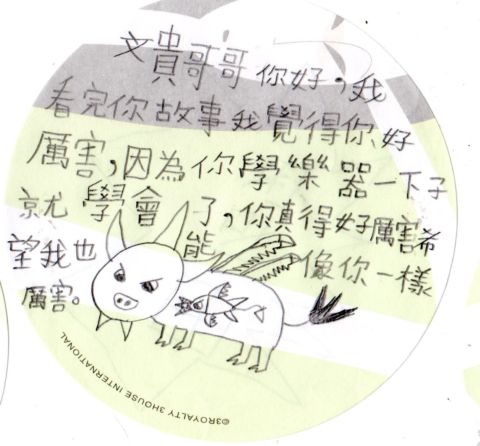 文貴哥哥你好，我
看完你故事我覺得你好
厲害，因為你學樂器一下子
就學會了，你真得好厲害希
望我也能像你一樣
厲害。
©3ROYALTY 3HOUSE INTERNATIONAL